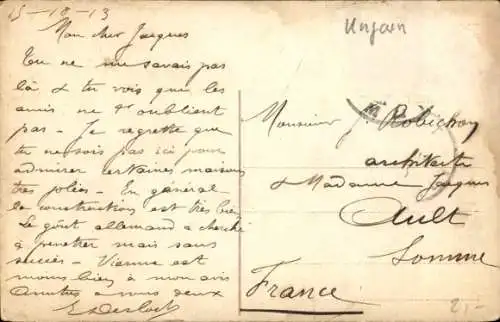 15-10-13
Mon cher Jacques
Tu ne me savais pas
là & tu vois que les
amis ne s'oublient
pas - Je regrette que
tu ne sois pas ici pour
admirer certaines maisons
très jolies - En général
la construction est très bien
Le goût allemand a cherché
à pénétrer mais sans
succès - Vienne est
moins bien à mon avis
Amitiés à vous deux
Ungarn
Monsieur J Robichon
architecte
& Madame Jacques
Ault
Somme
France
2,-